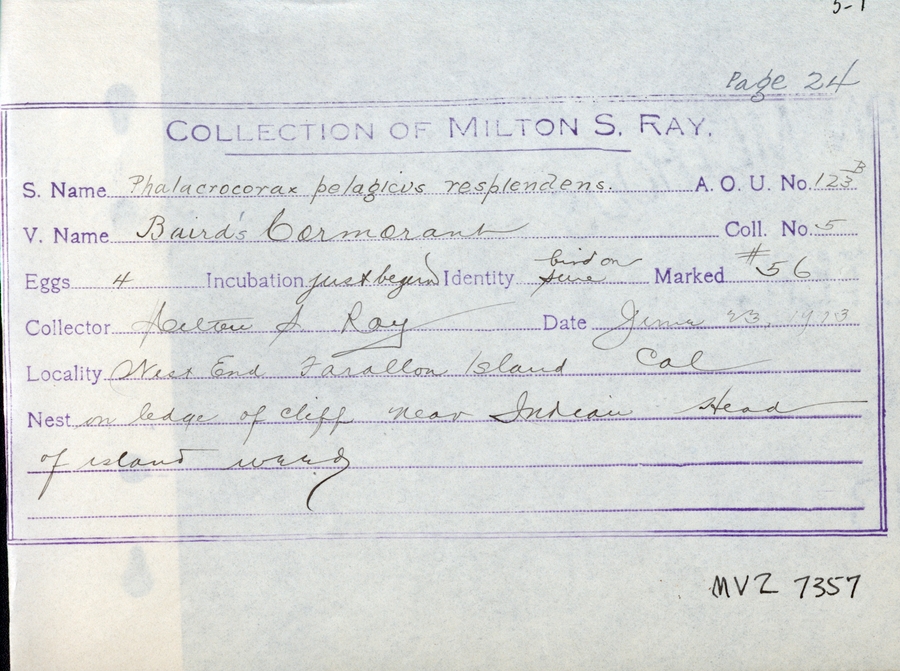 5-1
Page 24
COLLECTION OF MILTON S. RAY.
S. Name Phalacrocorax pelagicus resplendens. A. O. U. No. 123B
V. Name Baird's Cormorant Coll. No. 5
Eggs 4 Incubation just begun Identity bird on Marked #56
Collector Milton S. Ray Date June 23, 1913
Locality West End Farallon Island Cal
Nest on ledge of cliff near Indian Head
of island weed
MVZ 7357